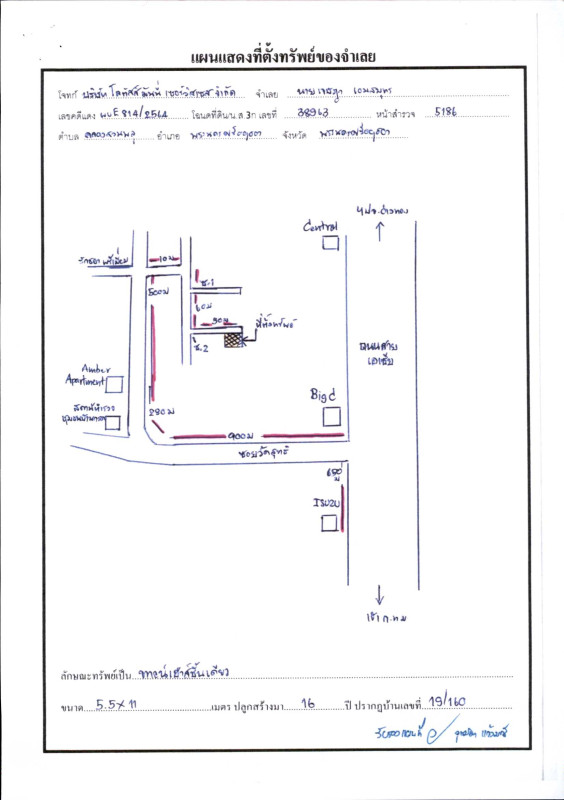 แผนแสดงที่ตั้งทรัพย์ของจำเลย
โจทก์ บริษัท โลตัสส์ มันนี่ เซอร์วิสเซส จำกัด จำเลย นาย
เลขคดีแดง ผบE 814/2564 โฉนดที่ดิน/น.ส 3ก เลขที่ 38963 หน้าสำรวจ 5186
ตำบล คลองสวนพลู อำเภอ พระนครศรีอยุธยา จังหวัด พระนครศรีอยุธยา
ไป จ.อ่างทอง
Central
พรีเมี่ยม
10 ม
500 ม
ซ.1
60 ม
50 ม
ที่ตั้งทรัพย์
ซ.2
ถนนสาย
เอเซีย
Amber
Apartment
สถานีตำรวจ
Big C
280 ม
900 ม
ซอยวัดสุทธิ
650 ม
ISUZU
เข้า ก.ท.ม
ลักษณะทรัพย์เป็น ทาวน์เฮ้าส์ชั้นเดียว
ขนาด 5.5 x 11 เมตร ปลูกสร้างมา 16 ปี ปรากฏบ้านเลขที่ 19/160